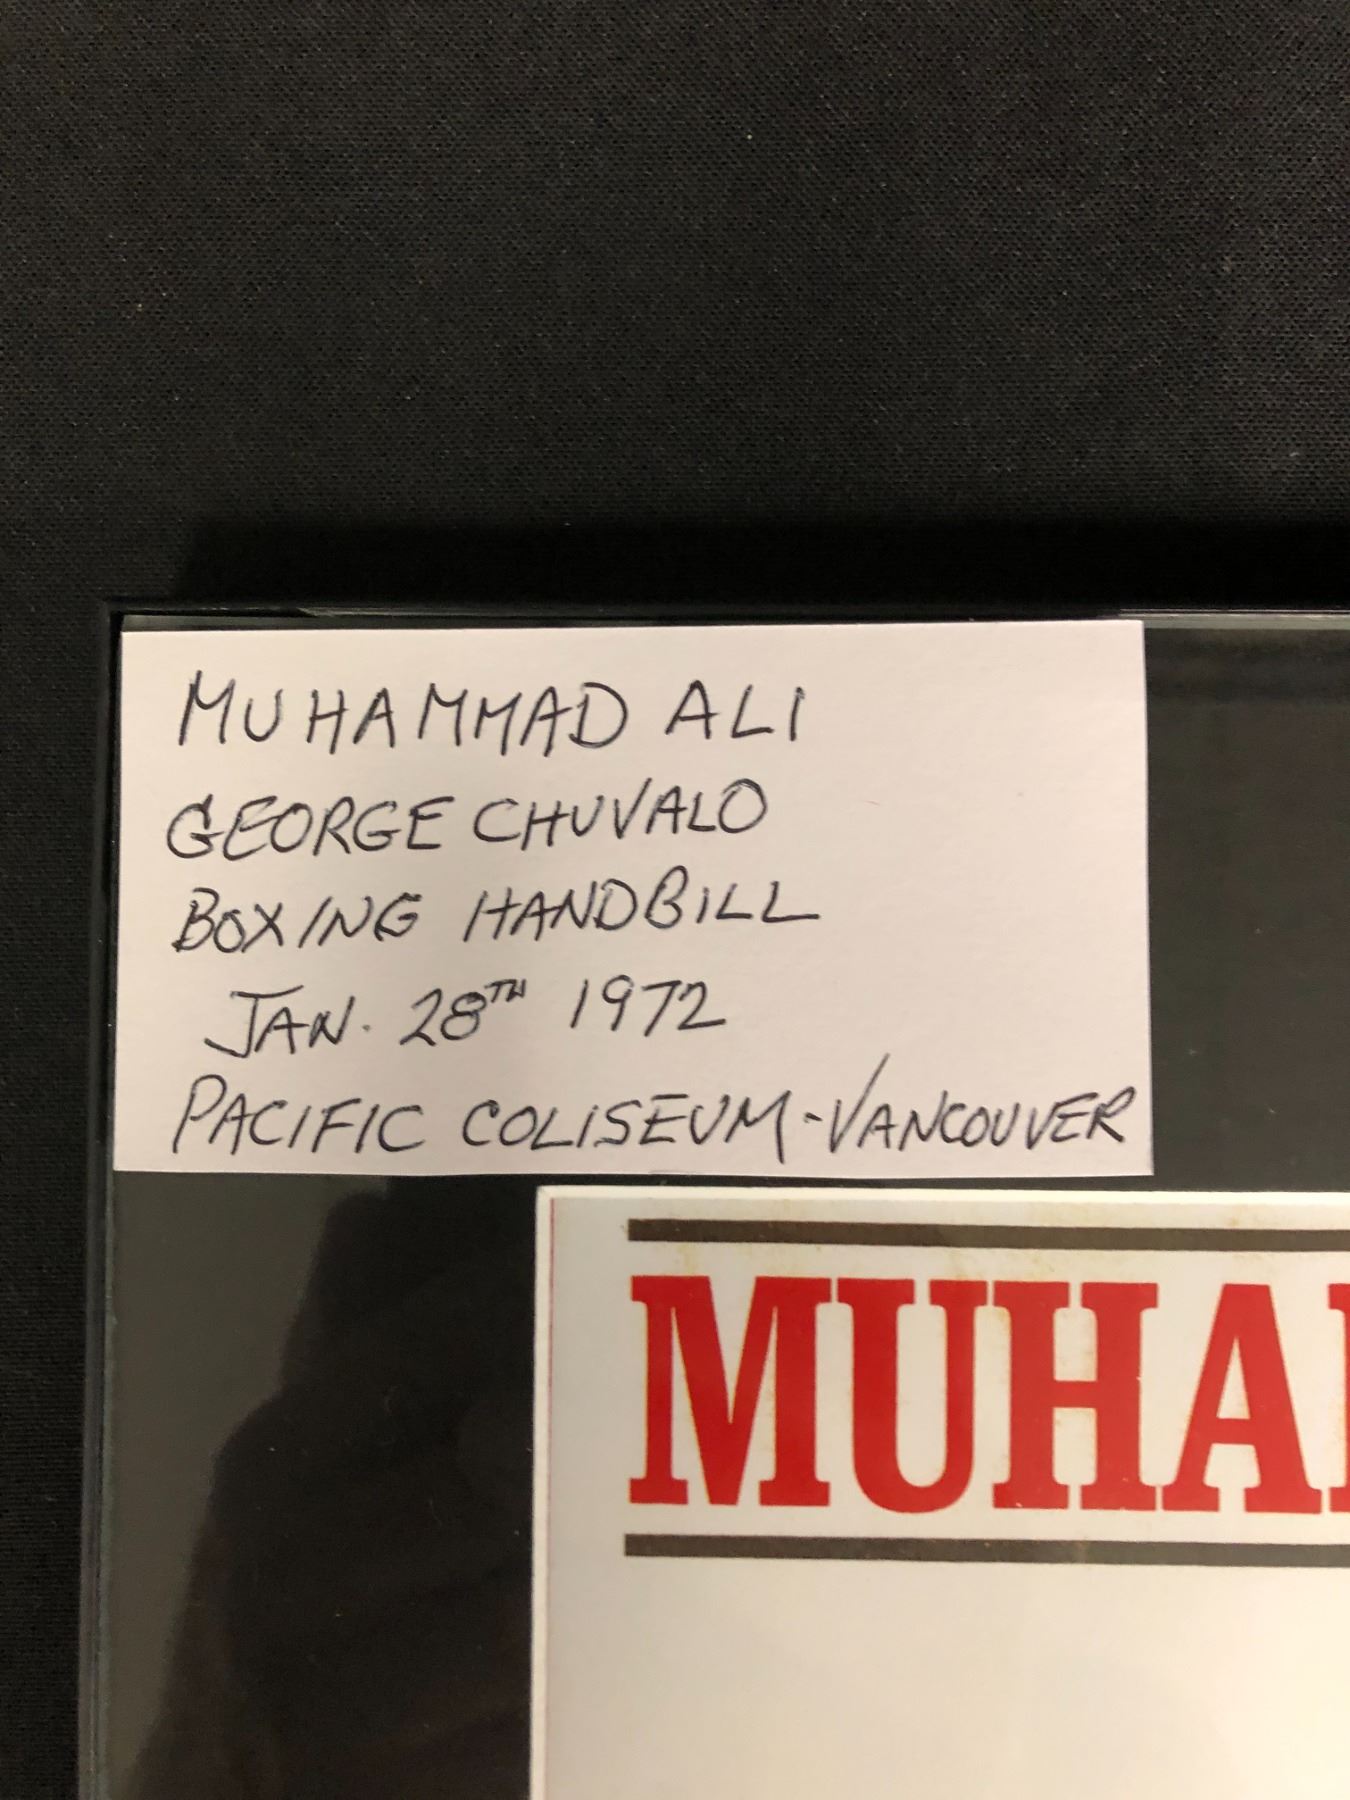 MUHAMMAD ALI
GEORGE CHUVALO
BOXING HANDBILL
JAN. 28TH 1972
PACIFIC COLISEUM - VANCOUVER
MUHA